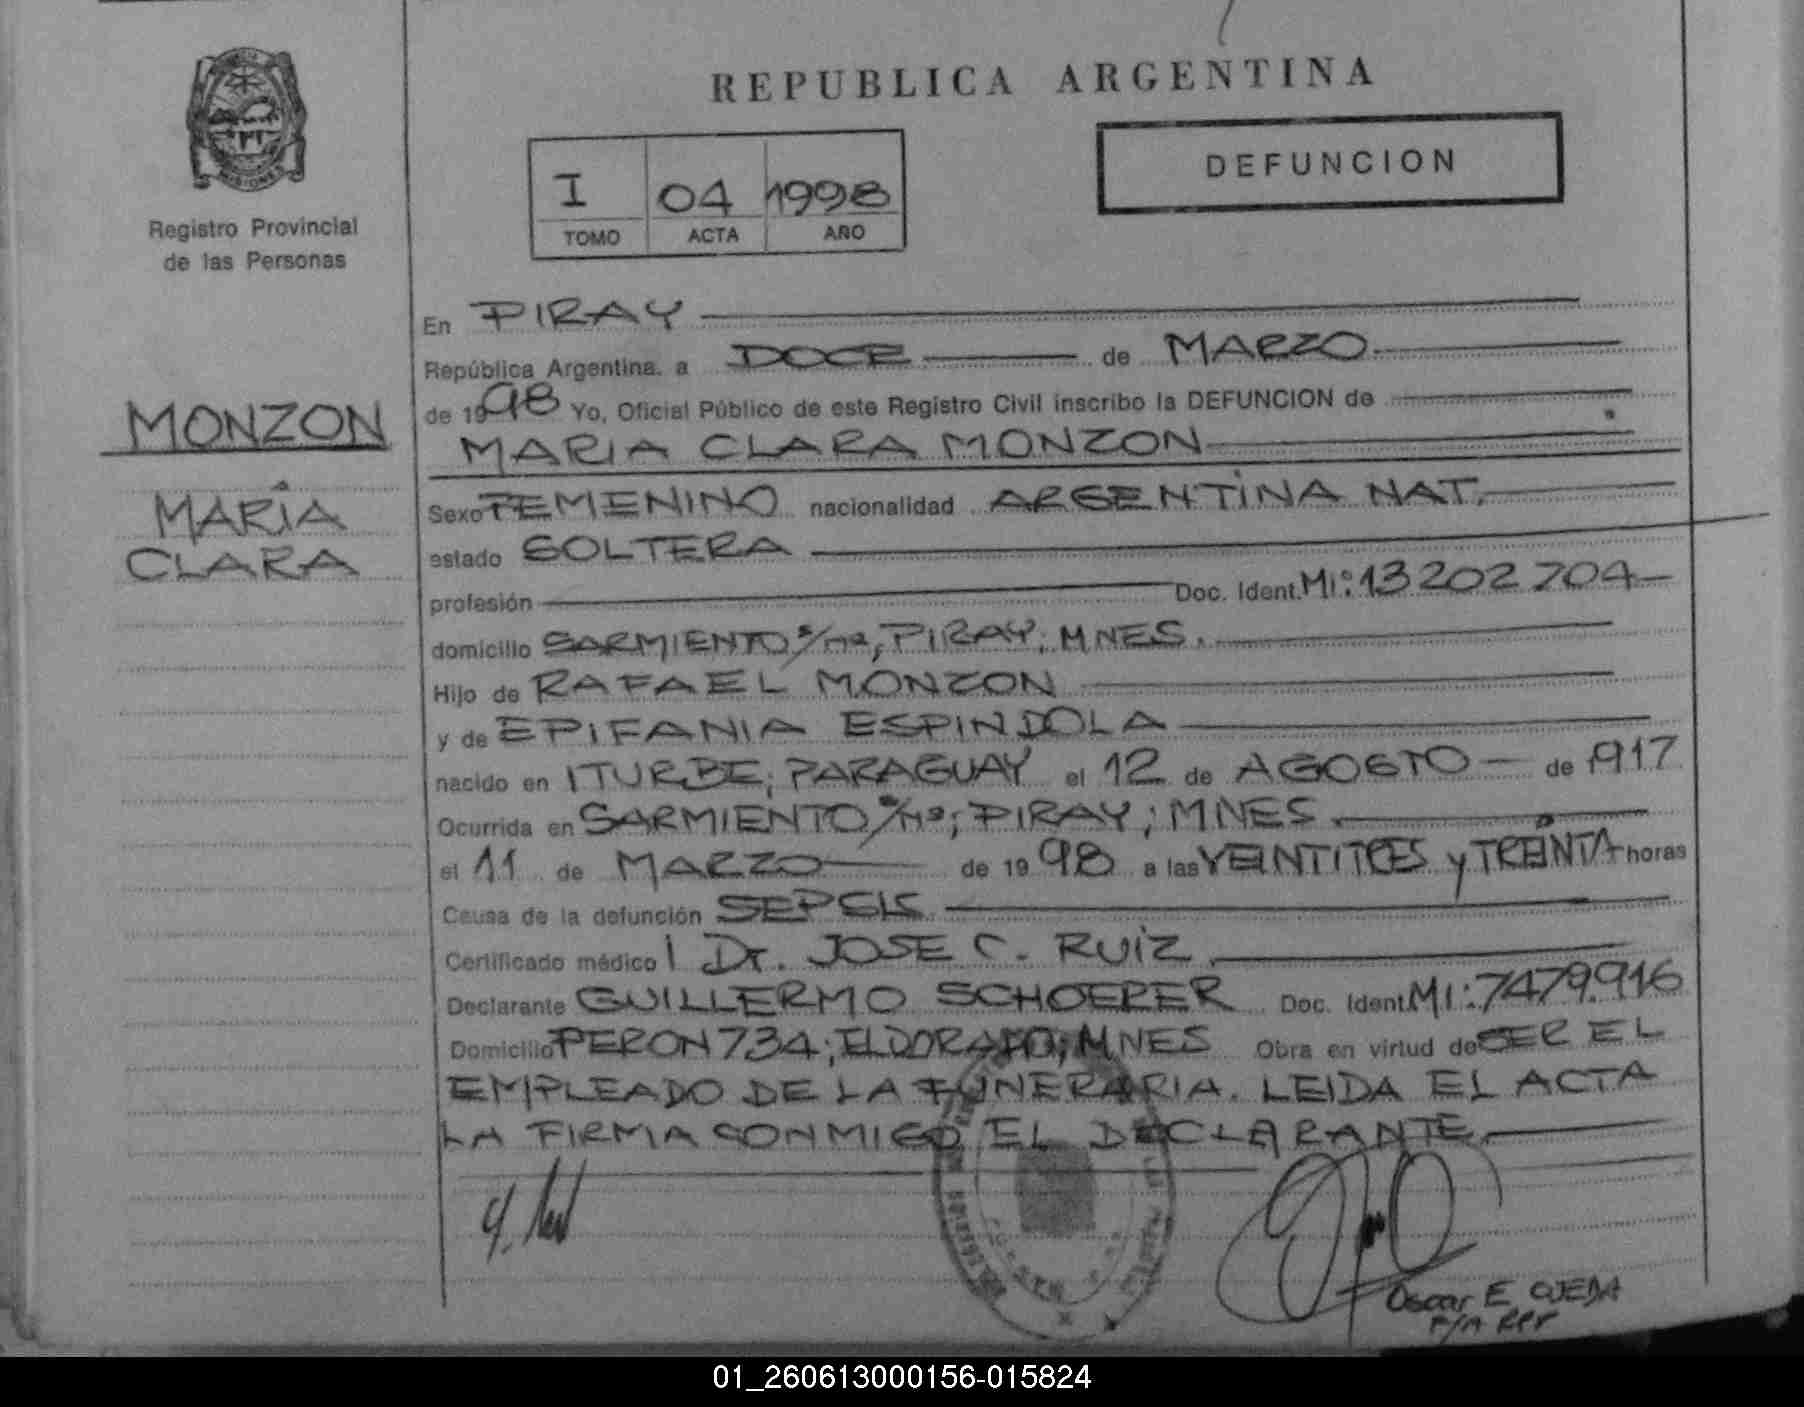 REPUBLICA ARGENTINA
DEFUNCION
I 04 1998
TOMO ACTA AÑO
MISIONES
Registro Provincial
de las Personas
MONZON
MARÍA
CLARA
En PIRAY
República Argentina. a DOCE de MARZO
de 1998 Yo, Oficial Público de este Registro Civil inscribo la DEFUNCION de
MARIA CLARA MONZON
Sexo FEMENINO nacionalidad ARGENTINA NAT.
estado SOLTERA
profesión Doc. Ident. MI: 13202704
domicilio SARMIENTO s/nº, PIRAY; MNES.
Hijo de RAFAEL MONZON
y de EPIFANIA ESPINDOLA
nacido en ITURBE, PARAGUAY el 12 de AGOSTO de 1917
Ocurrida en SARMIENTO s/nº; PIRAY; MNES.
el 11 de MARZO de 1998 a las VEINTITRES y TREINTA horas
Causa de la defunción SEPSIS
Certificado médico Dr. JOSE C. RUIZ.
Declarante GUILLERMO SCHOEPER Doc. Ident. MI: 7479.916
Domicilio PERON 734; ELDORADO; MNES Obra en virtud de SER EL
EMPLEADO DE LA FUNERARIA. LEIDA EL ACTA
LA FIRMA CONMIGO EL DECLARANTE.
Oscar E OJEDA
01_260613000156-015824